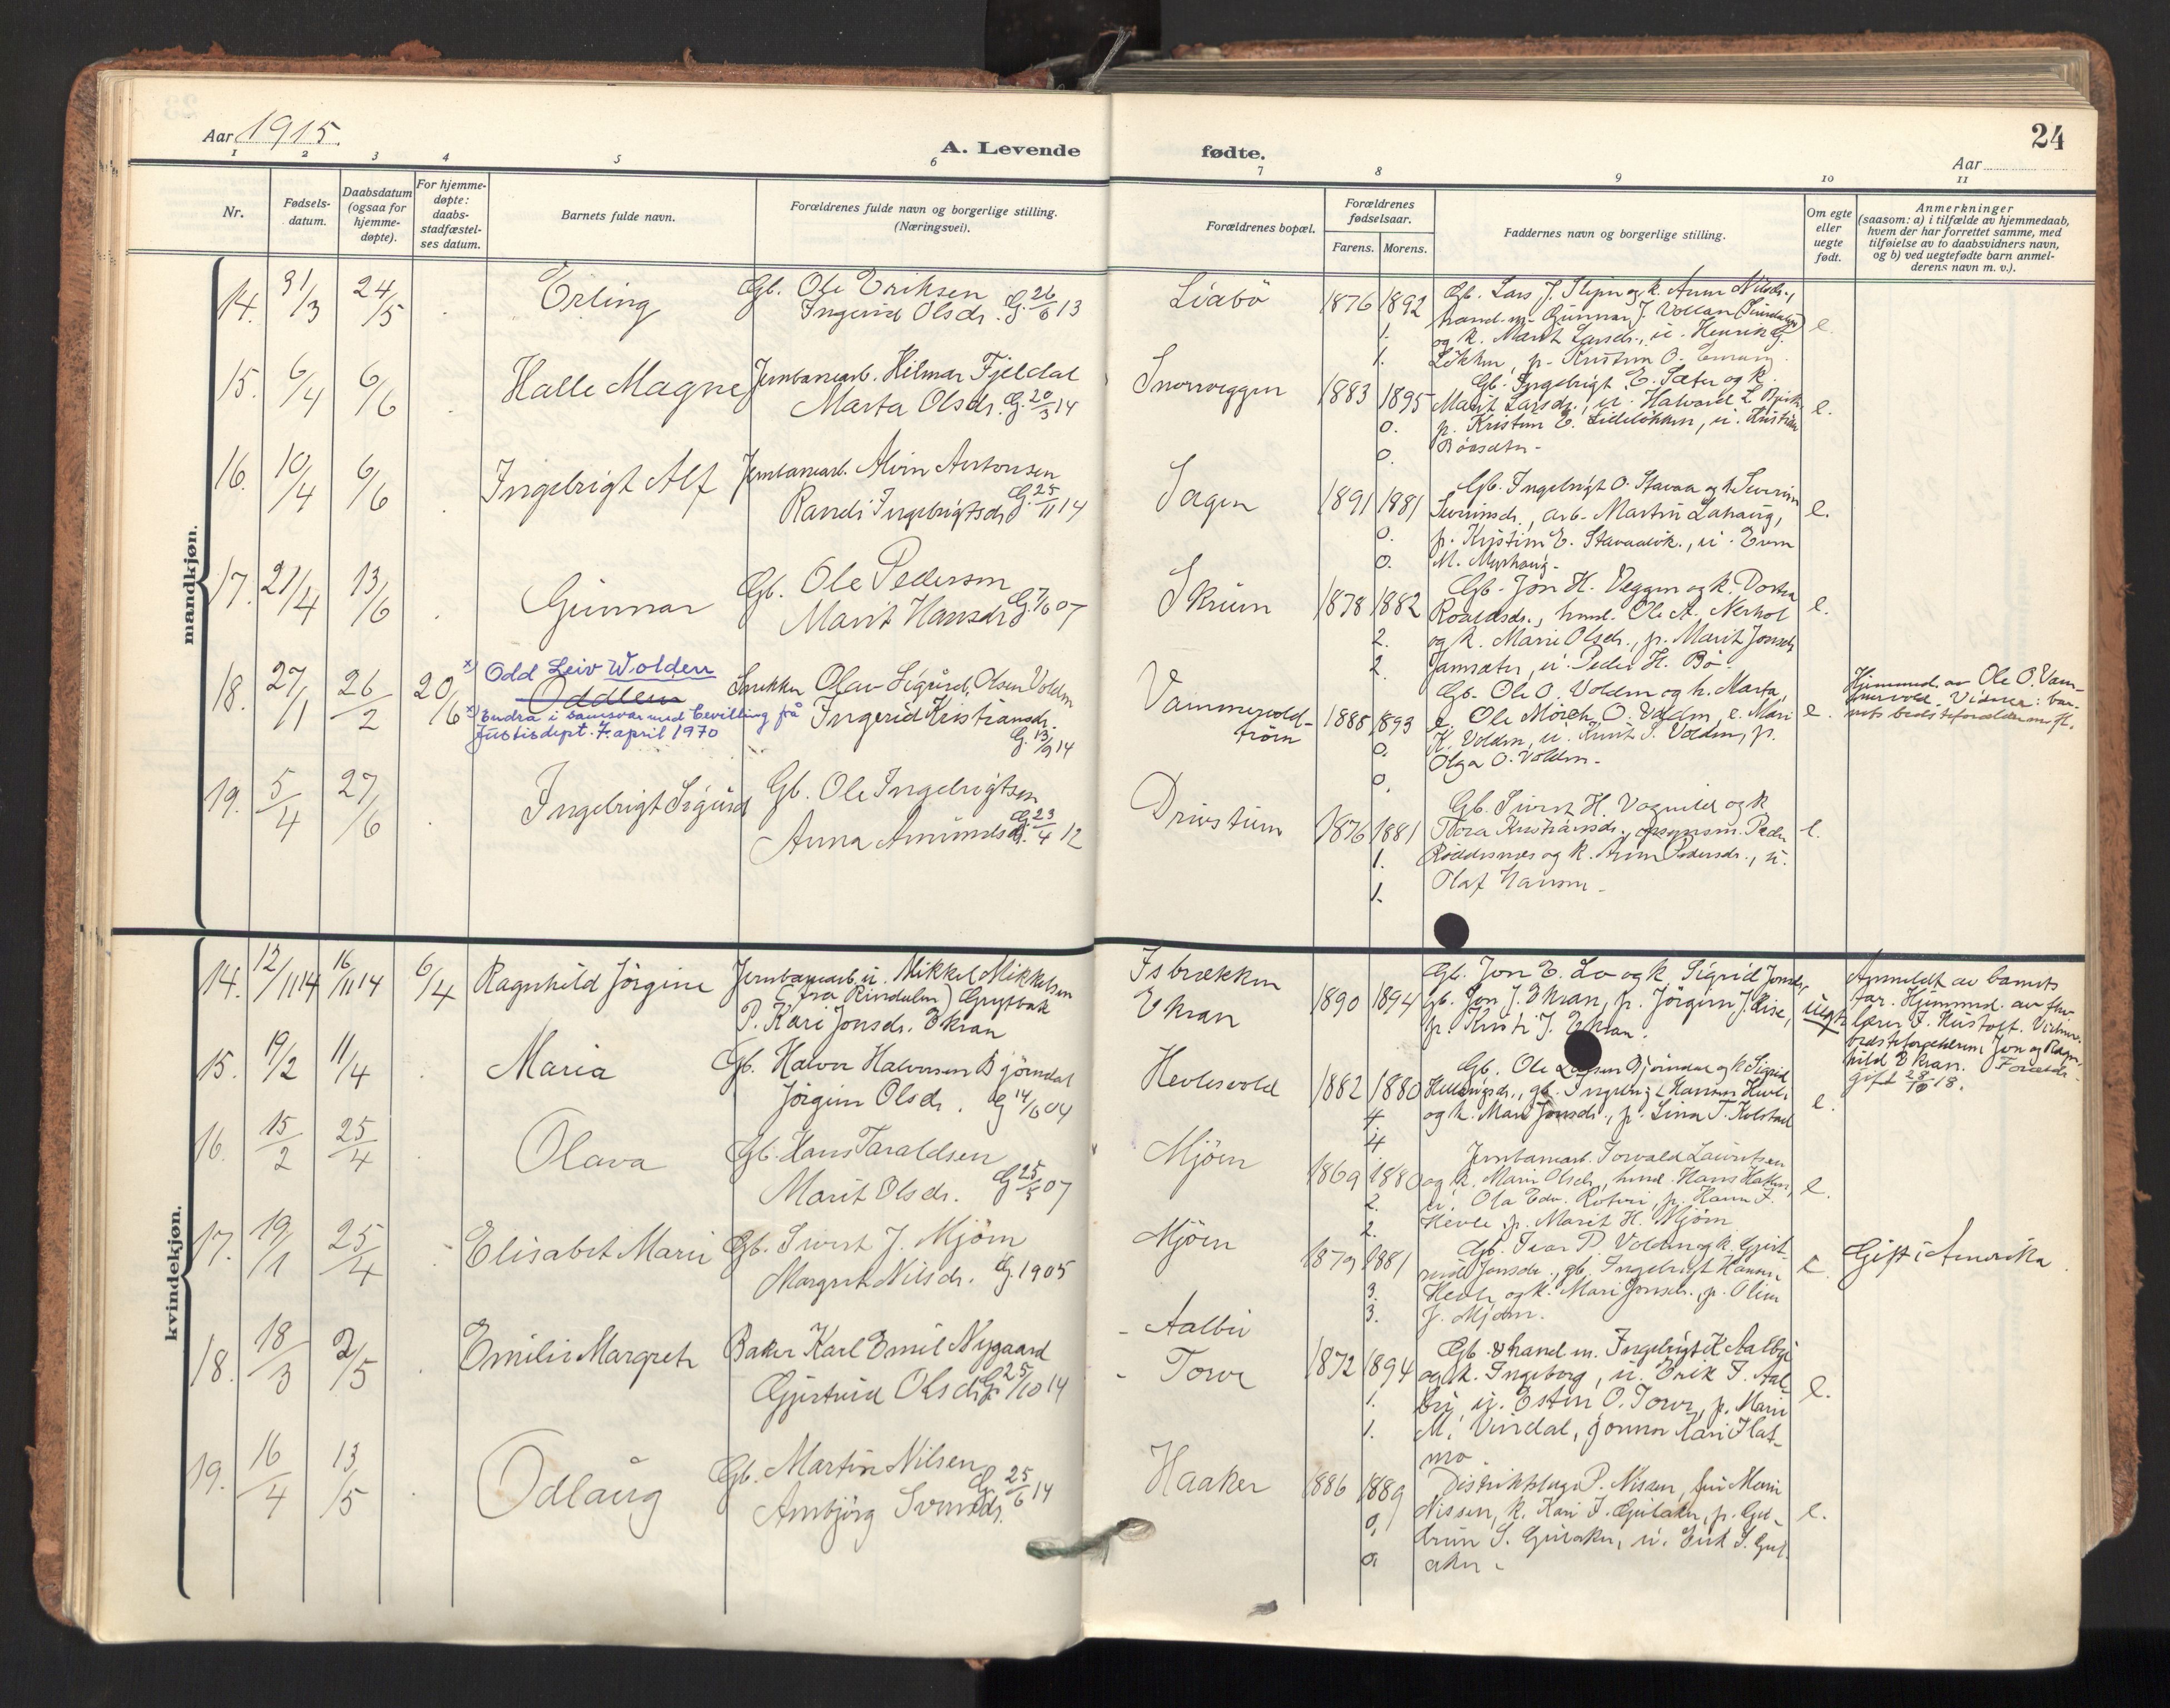 Aar 1915.
A. Levende
fødte.
24
Aar
1 2 3 4 5 6 7 8 9 10 11
Nr.
Fødsels-
datum.
Daabsdatum
(ogsaa for
hjemme-
døpte).
For hjemme-
døpte:
daabs-
stadfæstel-
ses datum.
Barnets fulde navn.
Forældrenes fulde navn og borgerlige stilling.
(Næringsvei).
Forældrenes bopæl.
Forældrenes
fødselsaar.
Farens. Morens.
Faddernes navn og borgerlige stilling.
Om egte
eller
uegte
født.
Anmerkninger
(saasom: a) i tilfælde av hjemmedaab,
hvem der har forrettet samme, med
tilføielse av to daabsvidners navn,
og b) ved uegtefødte barn anmel-
derens navn m. v.).
mandkjøn.
14. 31/3 24/5 Erling Gb. Ole Eriksen
Ingerid Olsdr. G. 26/6 13
Liabö 1876 1892
1.
1.
Gb. Lars J. og k. Anne Nilsdr.,
og k. Marit Larsdr., u. Henrik G.
e.
15. 6/4 6/6 Halle Magne Jernbanearb. Hilmar Fjeldal
Marta Olsdr. G. 20/3 14
Snoeveggen 1883 1895
0.
0.
Gb. Ingebrigt E. Sæter og k.
Marit Larsdr., u. Halvard L.
p. Kristine E. u. Kristian
e.
16. 10/4 6/6 Ingebrigt Alf Jernbanearb. Alvin Antonsen
Randi Ingebrigtsdr G. 25/11 14
Sagen 1891 1881
0.
0.
Gb. Ingebrigt O. Stavaa og k.
arb. Martin
p. Kristine E. u. Even
M. Myrhaug.
e.
17. 21/4 13/6 Gunnar Gb. Ole Pedersen
Marit Hansdr G. 7/6 07
Skruen 1878 1882
2.
2.
Gb. Jon H. Veggen og k. Dortea
Roaldsdr., husmd. Ole A. Nerhol
og k. Marie Olsdr., p. Marit Jonsdr
u. Peder H. Bö.
e.
18. 27/1 26/2 20/6 x) Odd Leiv Wolden
Oddleiv
x) Endra i samsvar med bevilling frå
Justisdept. 7. april 1970
Snekker Olav Sigurd Olsen Volden
Ingerid Kristiansdr.
G. 13/9 14
Vammervold-
trøen 1888 1893
0.
0.
Gb. Ole O. Volden og k. Marta,
e. Ole Mörch O. Volden, e. Mari
K. Volden, u. Knut S. Volden, p.
Olga O. Volden.
e.
Hjemmed. av Ole O. Vam-
mervold. Vidner: bar-
nets bedsteforældre
19. 5/4 27/6 Ingebrigt Sigurd Gb. Ole Ingebrigtsen
Anna Amundsdr. G. 23/4 12
Drivstuen 1876 1881
1.
1.
Gb. Sivert H. Vognild og k
Tora Kristiansdr., opsynsm. Peder
og k. Anne Pedersdr., u.
Olaf Hansen.
e.
kvindekjøn.
14. 12/11 14 16/11 14 6/4 Ragnhild Jörgine Jernbanearb. u. Mikkel Mikkelsen
(fra Rindalen) Grytbak
P. Kari Jonsdr. Ekran
Isbrækken
Ekran 1890 1894
Gb. Jon E. Lo og k Sigrid Jonsdr,
gb. Jon J. Ekran, p. Jörgine J. Rise,
p. Kristi J. Ekran.
uegte
Anmeldt av barnets
far. Hjemmed. av
lærer F. Hustoft. Vidner:
bedsteforældrene Jon og Ragn-
hild Ekran. Forældr.
gift 28/10 18.
15. 19/2 11/4 Maria Gb. Halvor Halvorsen Björndal
Jörgine Olsdr. G 14/6 04
Hevlesvold 1882 1880
4.
4
Gb. Ole Larsen Björndal og k Sigrid
gb. Ingebrigt Hansen Hevle
og k. Mari Jonsdr., p. Lina T. Kolstad
e.
16. 15/2 25/4 Olava Gb. Hans Taraldsen
Marit Olsdr. G 25/5 07
Mjöen 1869 1880
2.
2.
Jernbanearb. Torvald Lauritsen
og k. Marie Olsdr, husmd. Hans
u. Ola Edv. p. Hanna F.
Hevle, p. Marit H. Mjöen
e.
17. 19/1 25/4 Elisabet Marie Gb. Sivert J. Mjöen
Margret Nilsdr. G. 1905
Mjöen 1879 1881
3.
3.
Gb. Ivar P. Volden og k. Gjert-
rud Jonsdr., gb. Ingebrigt Hansen
Hevle og k. Mari Jonsdr., p. Oline
J. Mjöen.
e.
Gift i Amerika
18. 18/3 2/5 Emilie Margrete Baker Karl Emil Nygaard
Gjertrud Olsdr. G. 25/10 14
- Aalbu
- Torve 1872 1894
1.
1.
Gb. & handelm. Ingebrigt K Aalbu
og k. Ingeborg, u. Erik F. Aal-
bu, u. Esten O. Torve, p. Marie
M. Vindal, jomfr Kari Flat-
mo
e.
19. 16/4 13/5 Odlaug Gb. Martin Nilsen
Arnbjörg Svensdr. G 25/6 14
Haaker 1886 1889
0.
0.
Distriktslæge P. Nissen, fru Marie
Nissen, k. Kari I. Gulaker, p. Gu-
drun S. Gulaker, u. Erik S. Gul-
aker.
e.